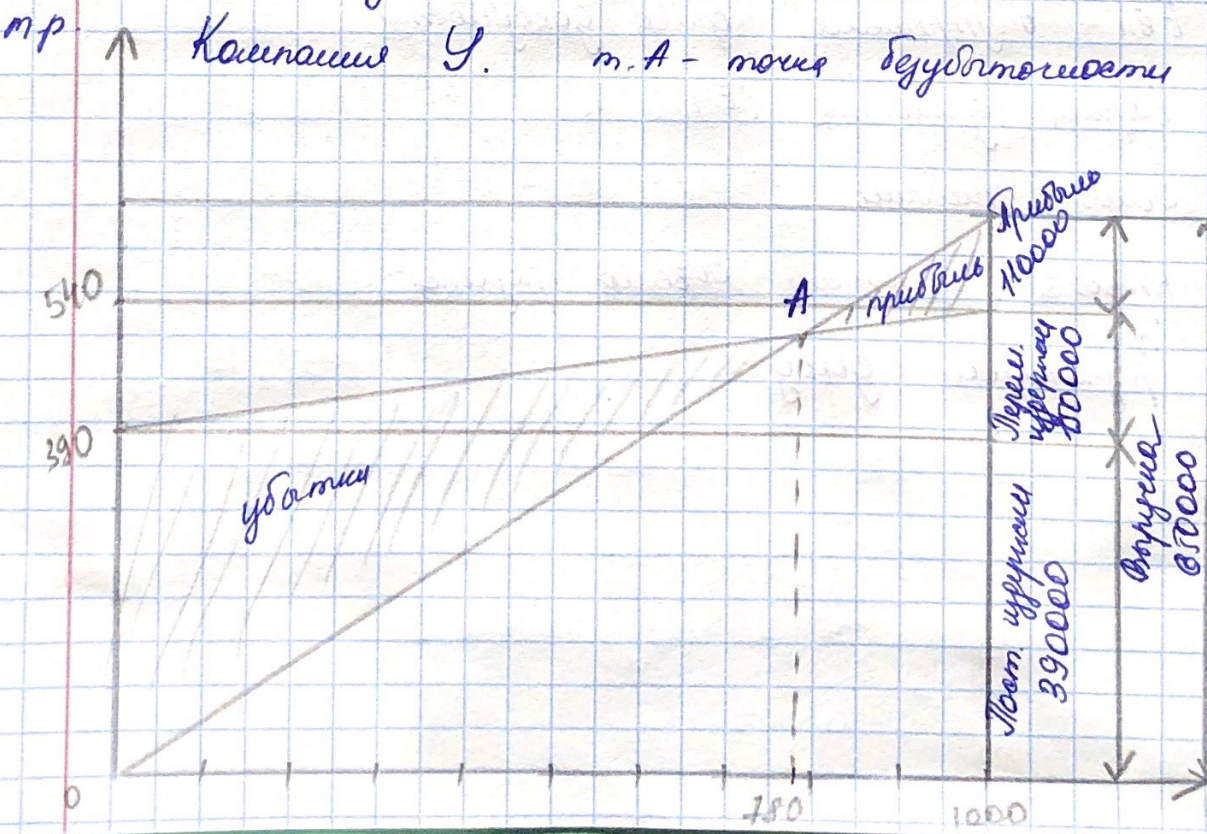 тр.
Компания У. т. А - точка безубыточности
540
390
0
убытки
А
прибыль
Прибыль
110000
Перем.
издержки
150000
Пост. издержки
390000
Выручка
650000
780
1000